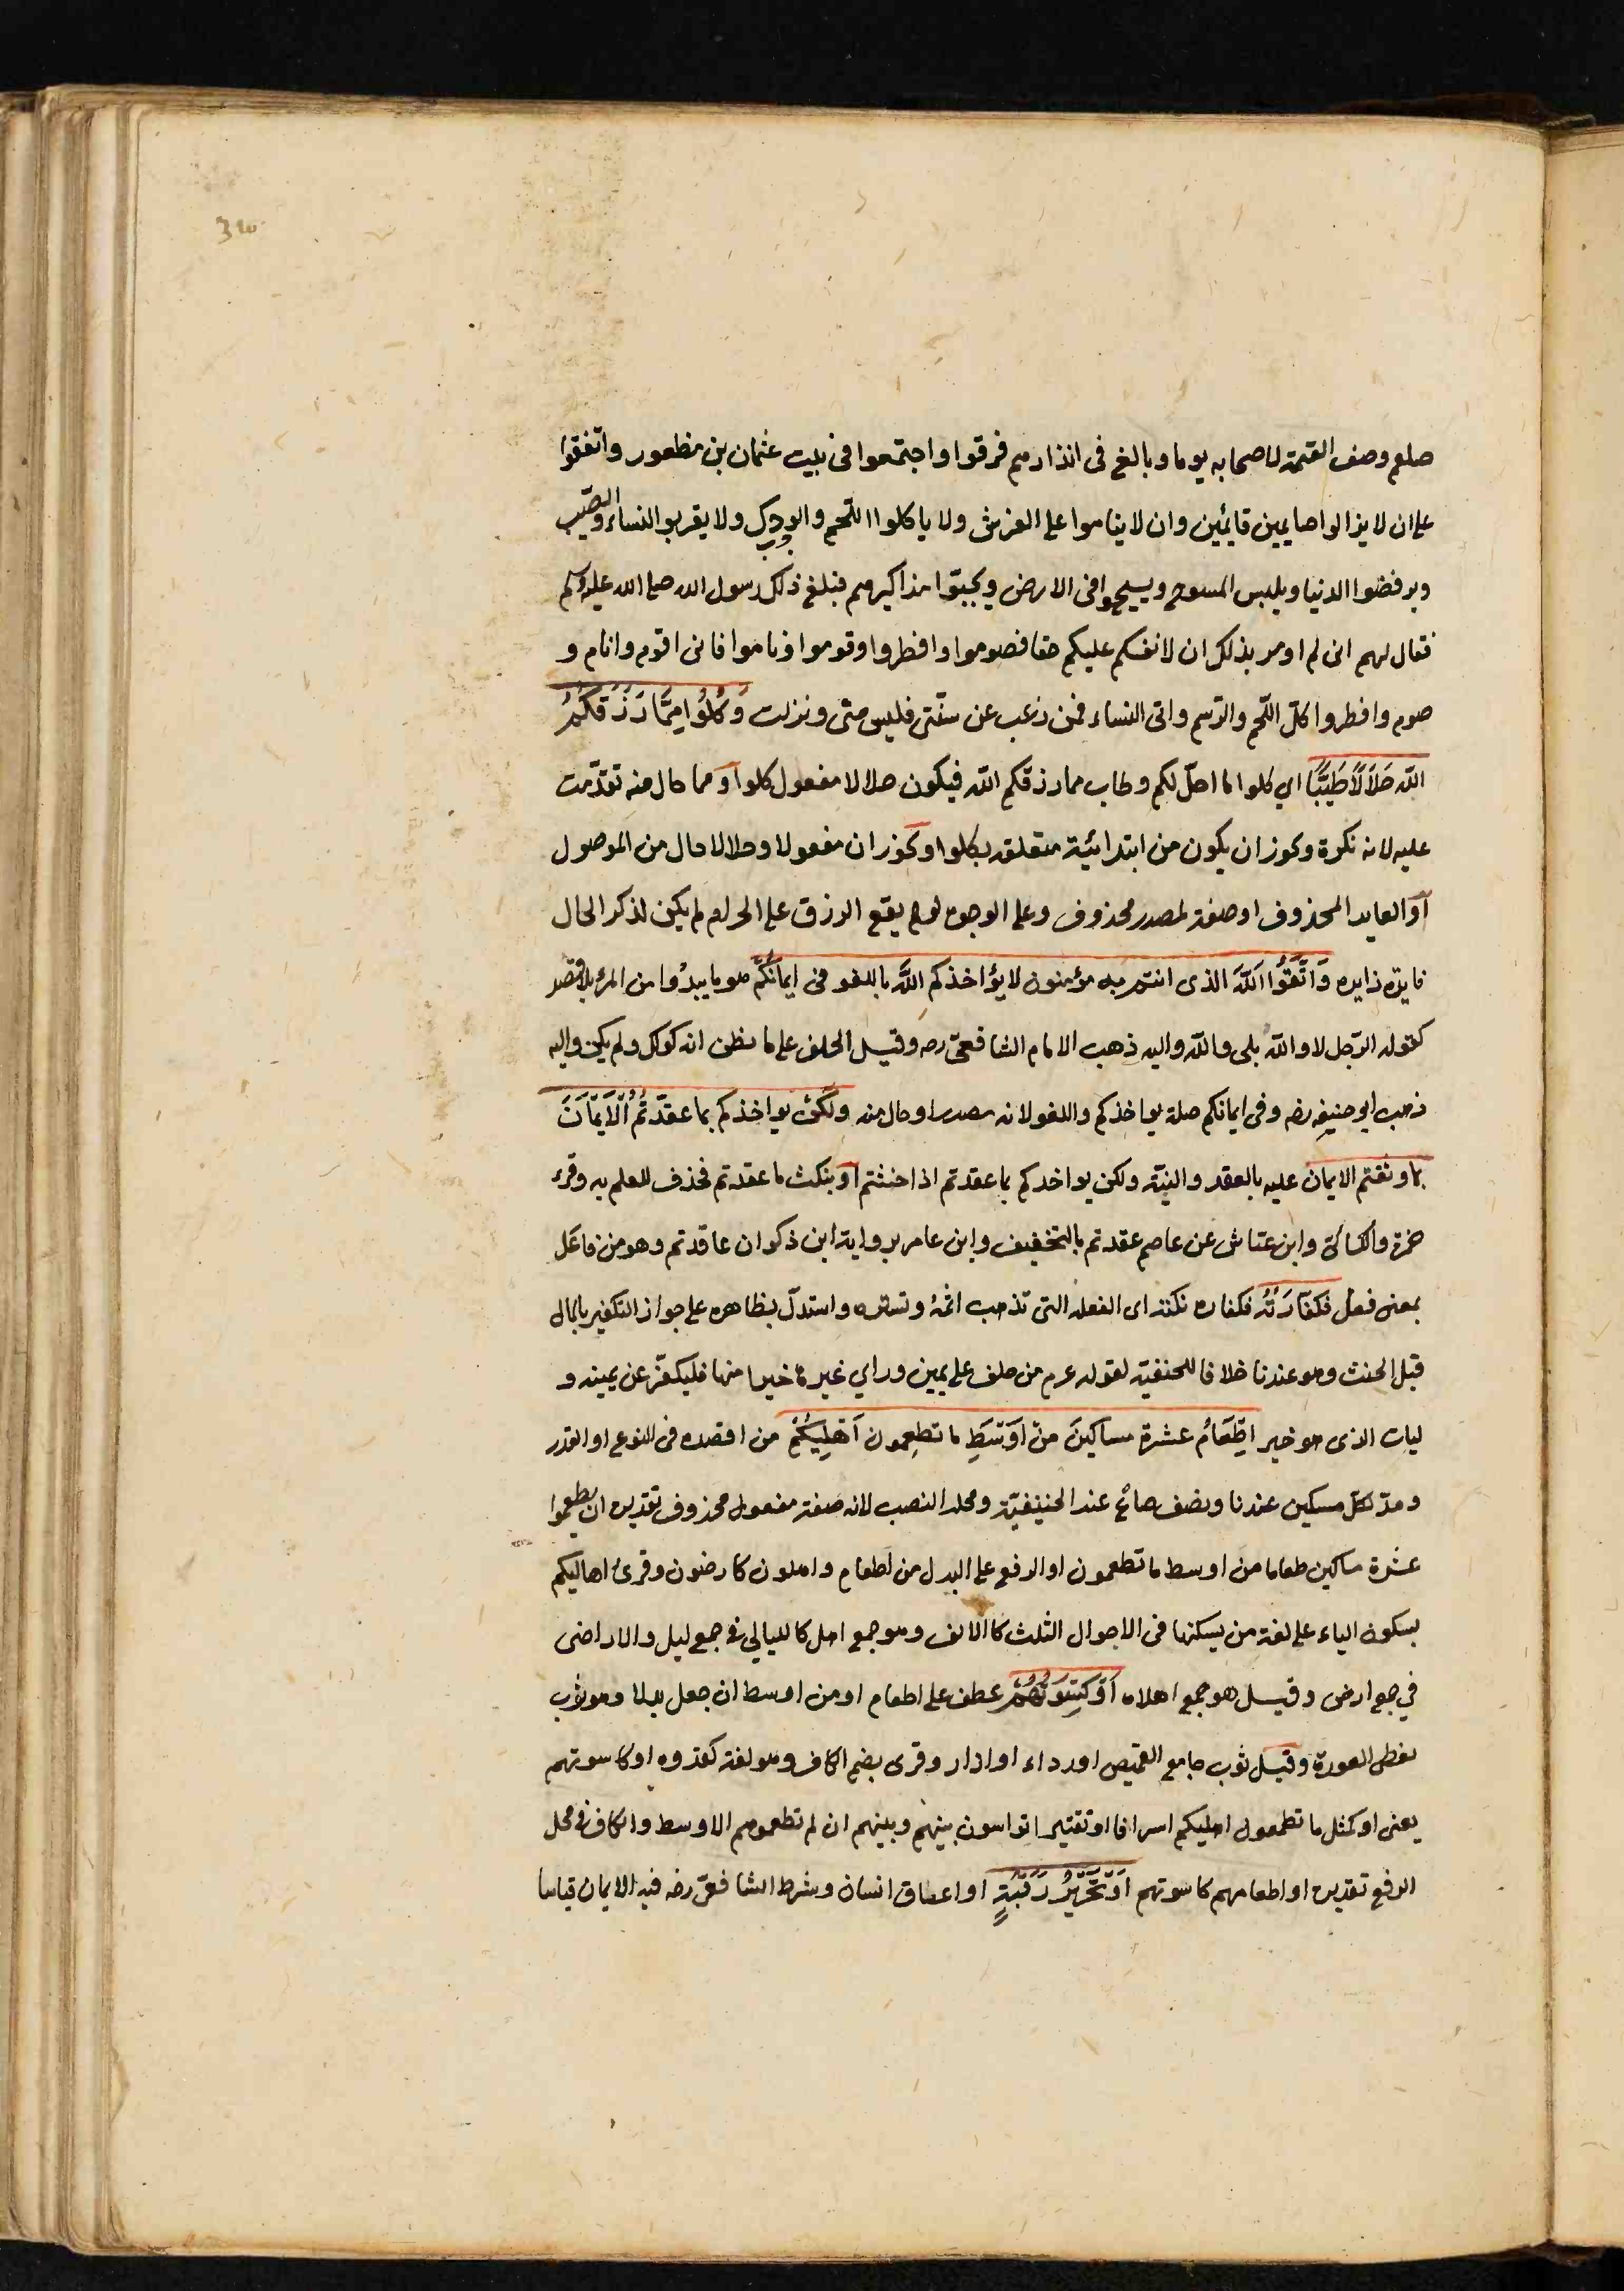 صلعم وصف القيمة لاصحابه يوما وبالغ فى انذارهم فرقوا واجتمعوا فى بيت عثمان بن مظعون واتفقوا
على ان لا يزالوا صايمين قايمين وان لا يناموا على الفرش ولا ياكلوا اللحم والودك ولا يقربوا النساء والطيب
ويرفضوا الدنيا ويلبس المسوح ويسيحوا فى الارض ويجبوا مذاكيرهم فبلغ ذلك رسول الله صلى الله عليه وسلم
فقال لهم انى لم اومر بذلك ان لانفسكم عليكم حقا فصوموا وافطروا وقوموا وناموا فانى اقوم وانام و
صوم وافطر واكل اللحم والدسم واتى النساء فمن رغب عن سنتى فليس منى ونزلت وَكُلُوا مِمَّا رَزَقَكُمُ
اللَّه حَلَالًا طَيِّبًا اي كلوا ما احل لكم وطاب مما رزقكم الله فيكون حلالا مفعول كلوا ومما حال منه تقدمت
عليه لانه نكرة ويجوز ان يكون من ابتدائية متعلقه بكلوا ويجوز ان مفعولا وحلالا حال من الموصول
او العايد المحذوف او صفة لمصدر محذوف وعلى الوجوه لو لم يقع الرزق على الحرام لم يكن لذكر الحال
فايدة زايده وَاتَّقُوا اللَّهَ الذى انتم به مؤمنون لا يؤاخذكم اللَّه باللغو فى ايمانكم هو ما يبدوا من المرء بلا قصد
كقوله الرجل لا والله بلى والله واليه ذهب الامام الشافعى رحه وقيل الحلف على ما يظن انه كذلك ولم يكن واليه
ذهب ابو حنيفه رضه وفى ايمانكم صلة يواخذكم واللغو لانه مصدر او حال منه ولكن يواخذكم بما عقدتم الْاَيْمَانَ
بما وثقتم الايمان عليه بالعقد والنية ولكن يواخدكم بما عقدتم اذا حنثتم او بنكث ما عقدتم فحذف للعلم به وقرء
حمزة والكسائى وابن عياش عن عاصم عقدتم بالتخفيف وابن عامر برواية ابن ذكوان عاقدتم وهو من فاعل
بمعنى فعل فكفارَتُه فكفاره نكثه اى الفعله التى تذهب اثمه وتستره واستدل بظاهره على جواز التكفير بالمال
قبل الحنث وهو عندنا خلافا للحنفية لقوله عم من حلف على يمين وراي غيرها خيرا منها فليكفر عن يمينه و
ليات الذى هو خير اِطْعَامُ عشرة مساكينَ من اَوْسَطِ ما تطعمون اَهْلِيكُمْ من اقصده فى النوع او القدر
ومد لكل مسكين عندنا ونصف صاع عند الحنيفية ومحله النصب لانه صفة مفعول محذوف تقديره ان يطعموا
عشرة مساكين طعاما من اوسط ما تطعمون او الرفع على البدل من اطعام واهلون كارضون وقرئ اهاليكم
بسكون الياء على لغة من يسكنها فى الاحوال الثلث كالالف وهو جمع اهل كالليالي في جمع ليل والاراضى
في جمع ارض وقيل هو جمع اهلاه اَوْ كِسْوَتُهُمْ عطف على اطعام او من اوسط ان جعل بدلا وهو ثوب
يغطى العورة وقيل ثوب جامع القميص او رداء او ازار وقرى بضم الكاف وهو لغة كقدوه او كاسوتهم
يعنى او كمثل ما تطعمون اهليكم اسرافا او تقتيرا تواسون بينهم وبينهم ان لم تطعموهم الاوسط والكاف في محل
الرفع تقديره او اطعامهم كاسوتهم اَوْ تَحْرِيرُ رَقَبَةٍ او اعتاق انسان وشرط الشافعى رضه فيه الايمان قياسا